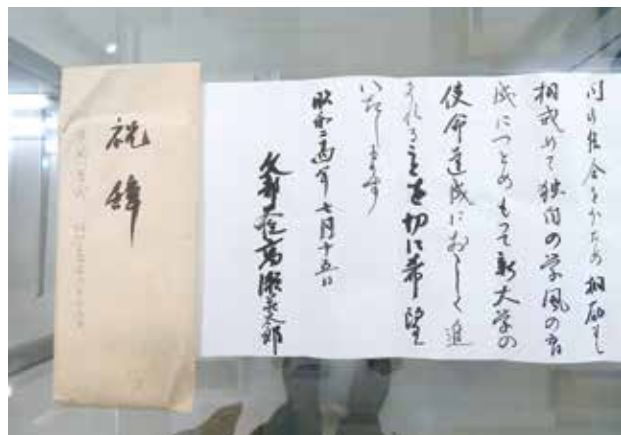 間の結合をかため相励まし
相戒めて独自の学風の育
成につとめもって新大学の
使命達成におゝしく進
まれることを切に希望
いたします
昭和二十四年七月十五日
文部大臣高瀬荘太郎
祝辞